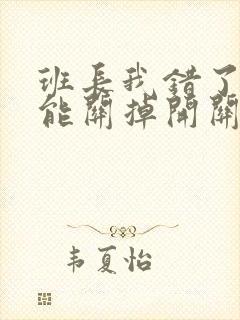 班长我错了
能關掉開關
韦夏怡